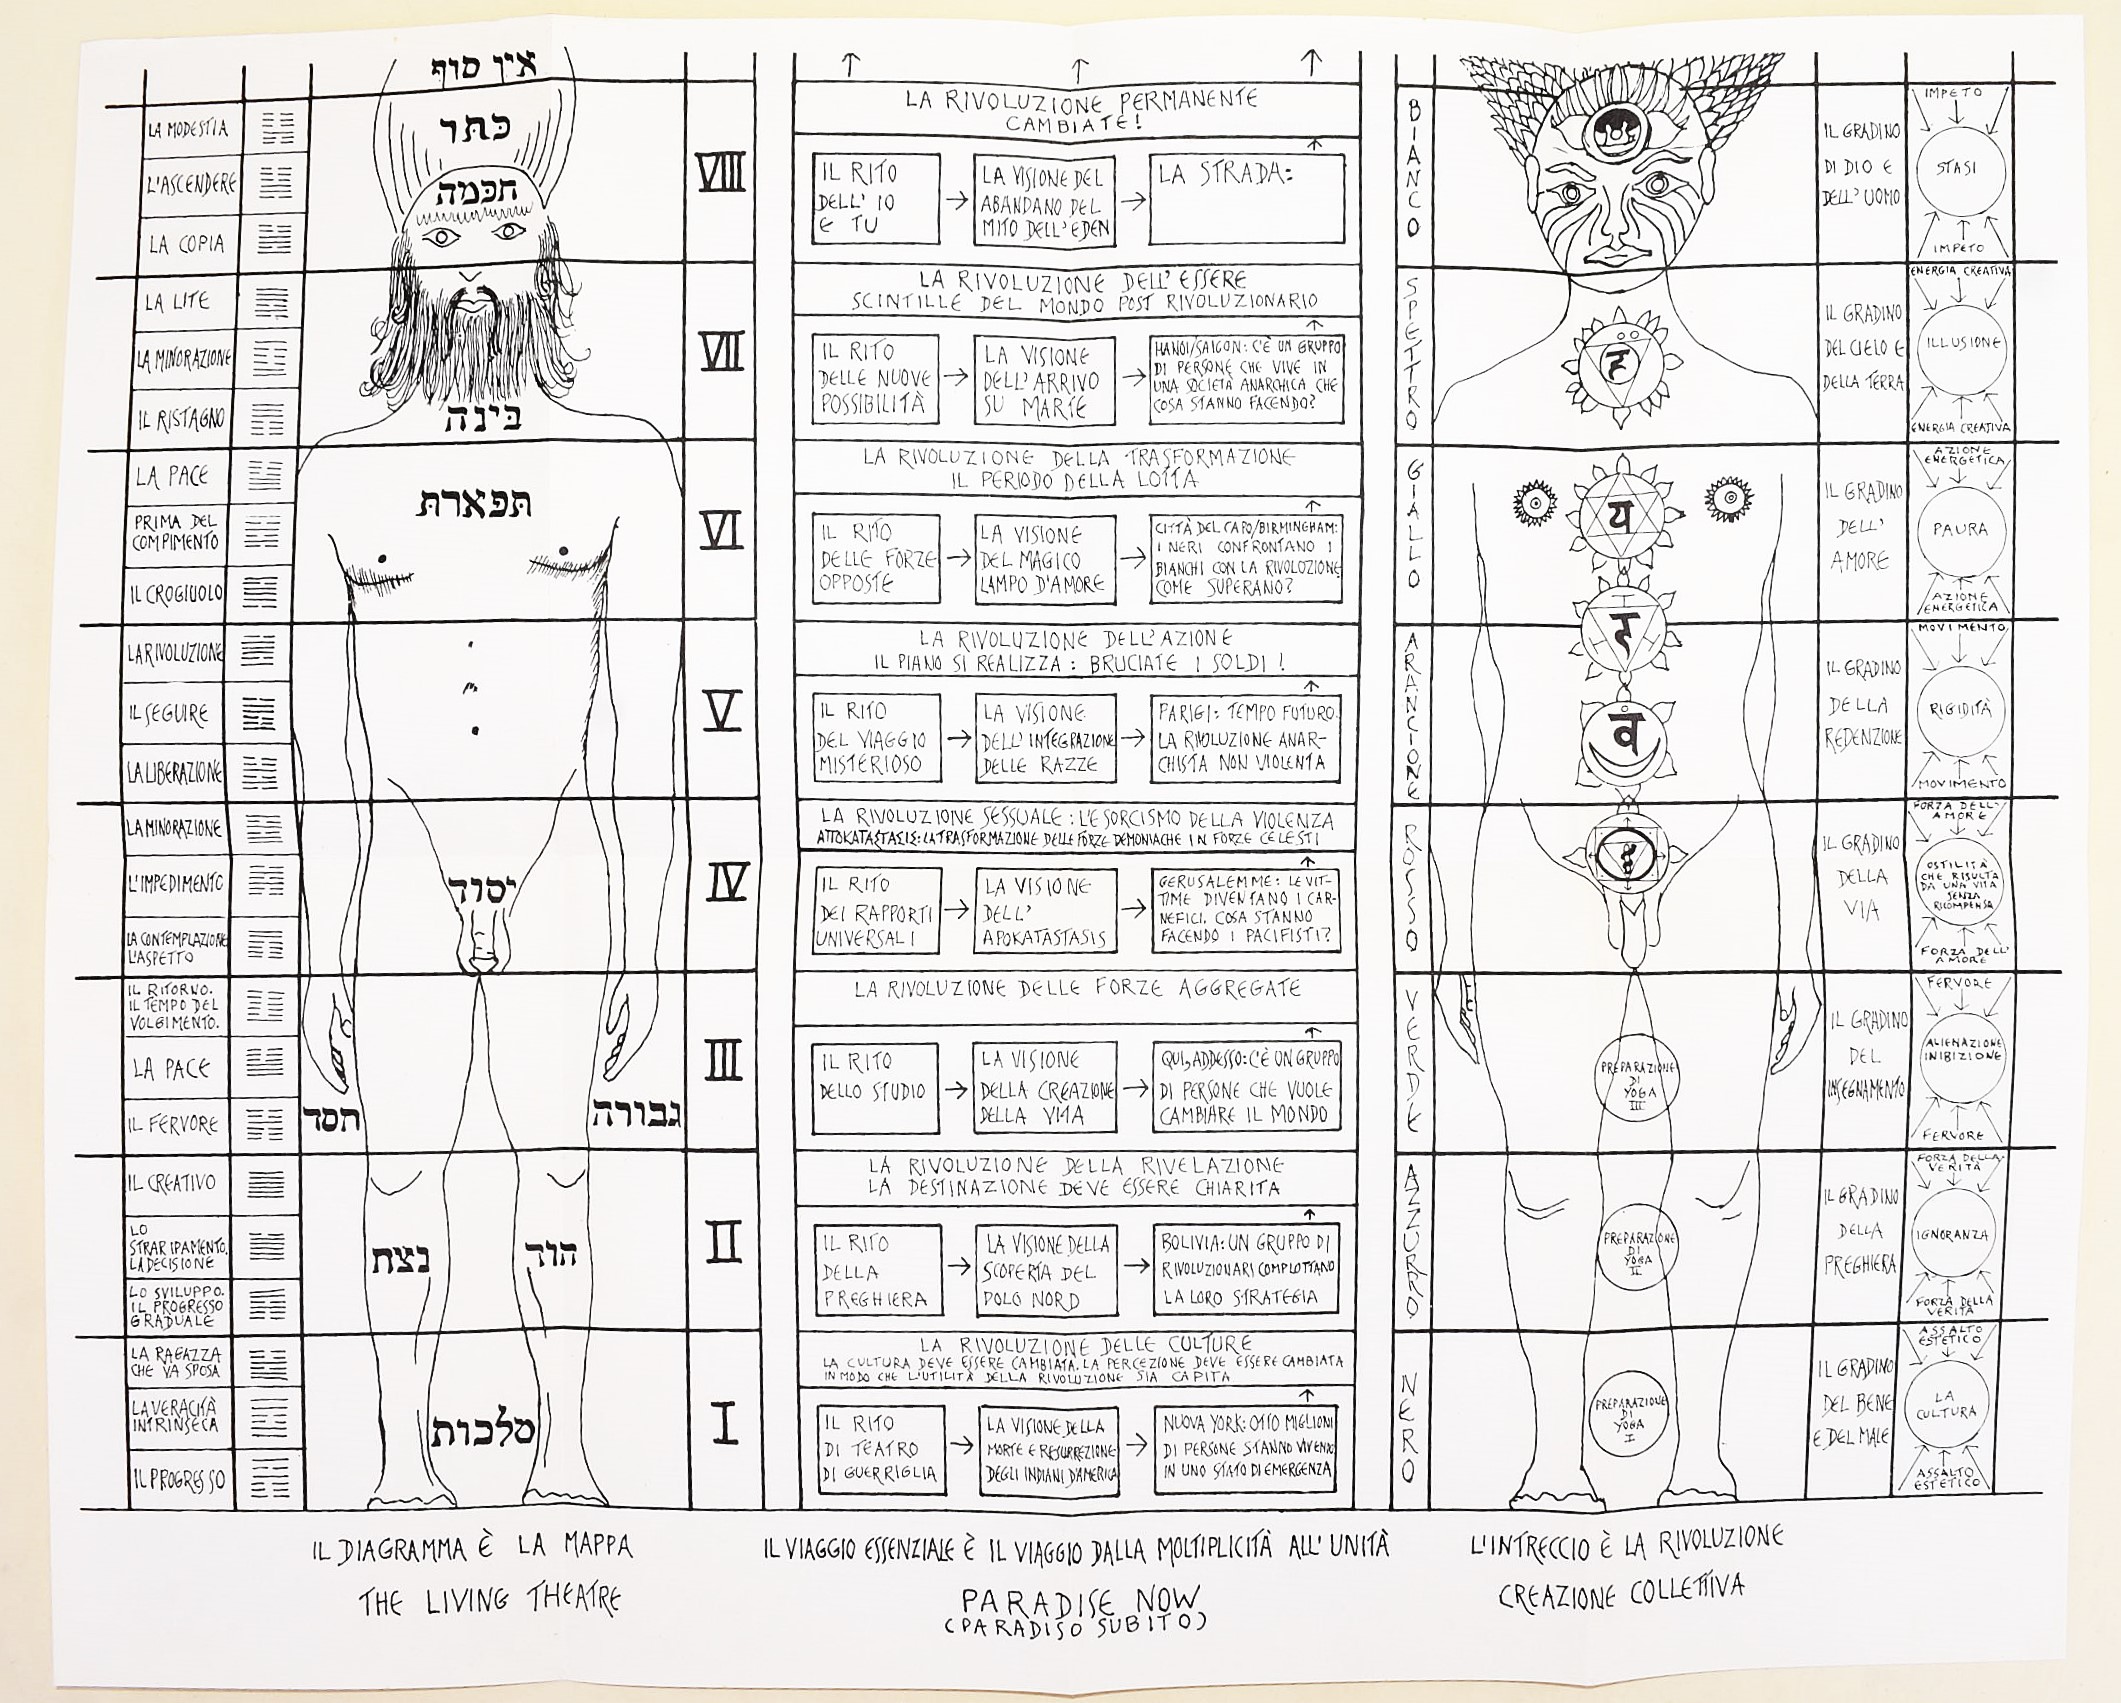 אין סוף
כתר
חכמה
בינה
תפארת
יסוד
חסד
גבורה
נצח
הוד
מלכות
LA MODESTIA
L'ASCENDERE
LA COPIA
LA LITE
LA MINORAZIONE
IL RISTAGNO
LA PACE
PRIMA DEL
COMPIMENTO
IL CROGIUOLO
LA RIVOLUZIONE
IL SEGUIRE
LA LIBERAZIONE
LA MINORAZIONE
L'IMPEDIMENTO
LA CONTEMPLAZIONE
L'ASPETTO
IL RITORNO.
IL TEMPO DEL
VOLGIMENTO.
LA PACE
IL FERVORE
IL CREATIVO
LO
STRARIPAMENTO.
LA DECISIONE
LO SVILUPPO.
IL PROGRESSO
GRADUALE
LA RAGAZZA
CHE VA SPOSA
LA VERACITÀ
INTRINSECA
IL PROGRESSO
VIII
VII
VI
V
IV
III
II
I
LA RIVOLUZIONE PERMANENTE
CAMBIATE!
IL RITO
DELL' IO
E TU
LA VISIONE DEL
ABANDANO DEL
MITO DELL'EDEN
LA STRADA:
LA RIVOLUZIONE DELL'ESSERE
SCINTILLE DEL MONDO POST RIVOLUZIONARIO
IL RITO
DELLE NUOVE
POSSIBILITÀ
LA VISIONE
DELL'ARRIVO
SU MARTE
HANOI/SAIGON: C'È UN GRUPPO
DI PERSONE CHE VIVE IN
UNA SOCIETÀ ANARCHICA CHE
COSA STANNO FACENDO?
LA RIVOLUZIONE DELLA TRASFORMAZIONE
IL PERIODO DELLA LOTTA
IL RITO
DELLE FORZE
OPPOSTE
LA VISIONE
DEL MAGICO
LAMPO D'AMORE
CITTÀ DEL CAPO/BIRMINGHAM:
I NERI CONFRONTANO I
BIANCHI CON LA RIVOLUZIONE
COME SUPERANO?
LA RIVOLUZIONE DELL'AZIONE
IL PIANO SI REALIZZA: BRUCIATE I SOLDI!
IL RITO
DEL VIAGGIO
MISTERIOSO
LA VISIONE
DELL'INTEGRAZIONE
DELLE RAZZE
PARIGI: TEMPO FUTURO.
LA RIVOLUZIONE ANAR-
CHISTA NON VIOLENTA
LA RIVOLUZIONE SESSUALE: L'ESORCISMO DELLA VIOLENZA
: LA TRASFORMAZIONE DELLE FORZE DEMONIACHE IN FORZE CELESTI
IL RITO
DEI RAPPORTI
UNIVERSALI
LA VISIONE
DELL'
APOKATASTASIS
GERUSALEMME: LE VIT-
TIME DIVENTANO I CAR-
NEFICI. COSA STANNO
FACENDO I PACIFISTI?
LA RIVOLUZIONE DELLE FORZE AGGREGATE
IL RITO
DELLO STUDIO
LA VISIONE
DELLA CREAZIONE
DELLA VITA
QUI, ADDESSO: C'È UN GRUPPO
DI PERSONE CHE VUOLE
CAMBIARE IL MONDO
LA RIVOLUZIONE DELLA RIVELAZIONE
LA DESTINAZIONE DEVE ESSERE CHIARITA
IL RITO
DELLA
PREGHIERA
LA VISIONE DELLA
SCOPERTA DEL
POLO NORD
BOLIVIA: UN GRUPPO DI
RIVOLUZIONARI COMPLOTTANO
LA LORO STRATEGIA
LA RIVOLUZIONE DELLE CULTURE
LA CULTURA DEVE ESSERE CAMBIATA. LA PERCEZIONE DEVE ESSERE CAMBIATA
IN MODO CHE L'UTILITÀ DELLA RIVOLUZIONE SIA CAPITA
IL RITO
DI TEATRO
DI GUERRIGLIA
LA VISIONE DELLA
MORTE E RESURREZIONE
DEGLI INDIANI D'AMERICA
NUOVA YORK: OTTO MIGLIONI
DI PERSONE STANNO VIVENDO
IN UNO STATO DI EMERGENZA
BIANCO
SPETTRO
GIALLO
ARANCIONE
ROSSO
VERDE
AZZURRO
NERO
ह
य
र
व
PREPARAZIONE
DI
YOGA
III
PREPARAZIONE
DI
YOGA
II
PREPARAZIONE
DI
YOGA
I
IL GRADINO
DI DIO E
DELL'UOMO
IL GRADINO
DEL CIELO E
DELLA TERRA
IL GRADINO
DELL'
AMORE
IL GRADINO
DELLA
REDENZIONE
IL GRADINO
DELLA
VIA
IL GRADINO
DEL
INSEGNAMENTO
IL GRADINO
DELLA
PREGHIERA
IL GRADINO
DEL BENE
E DEL MALE
IMPETO
STASI
IMPETO
ENERGIA CREATIVA
ILLUSIONE
ENERGIA CREATIVA
AZIONE
ENERGETICA
PAURA
AZIONE
ENERGETICA
MOVIMENTO
RIGIDITÀ
MOVIMENTO
FORZA DELL'
AMORE
OSTILITÀ
CHE RISULTA
DA UNA VITA
SENZA
RICOMPENSA
FORZA DELL'
AMORE
FERVORE
ALIENAZIONE
INIBIZIONE
FERVORE
FORZA DELLA
VERITÀ
IGNORANZA
FORZA DELLA
VERITÀ
ASSALTO
ESTETICO
LA
CULTURA
ASSALTO
ESTETICO
IL DIAGRAMMA È LA MAPPA
THE LIVING THEATRE
IL VIAGGIO ESSENZIALE È IL VIAGGIO DALLA MOLTIPLICITÀ ALL'UNITÀ
PARADISE NOW
(PARADISO SUBITO)
L'INTRECCIO È LA RIVOLUZIONE
CREAZIONE COLLETTIVA